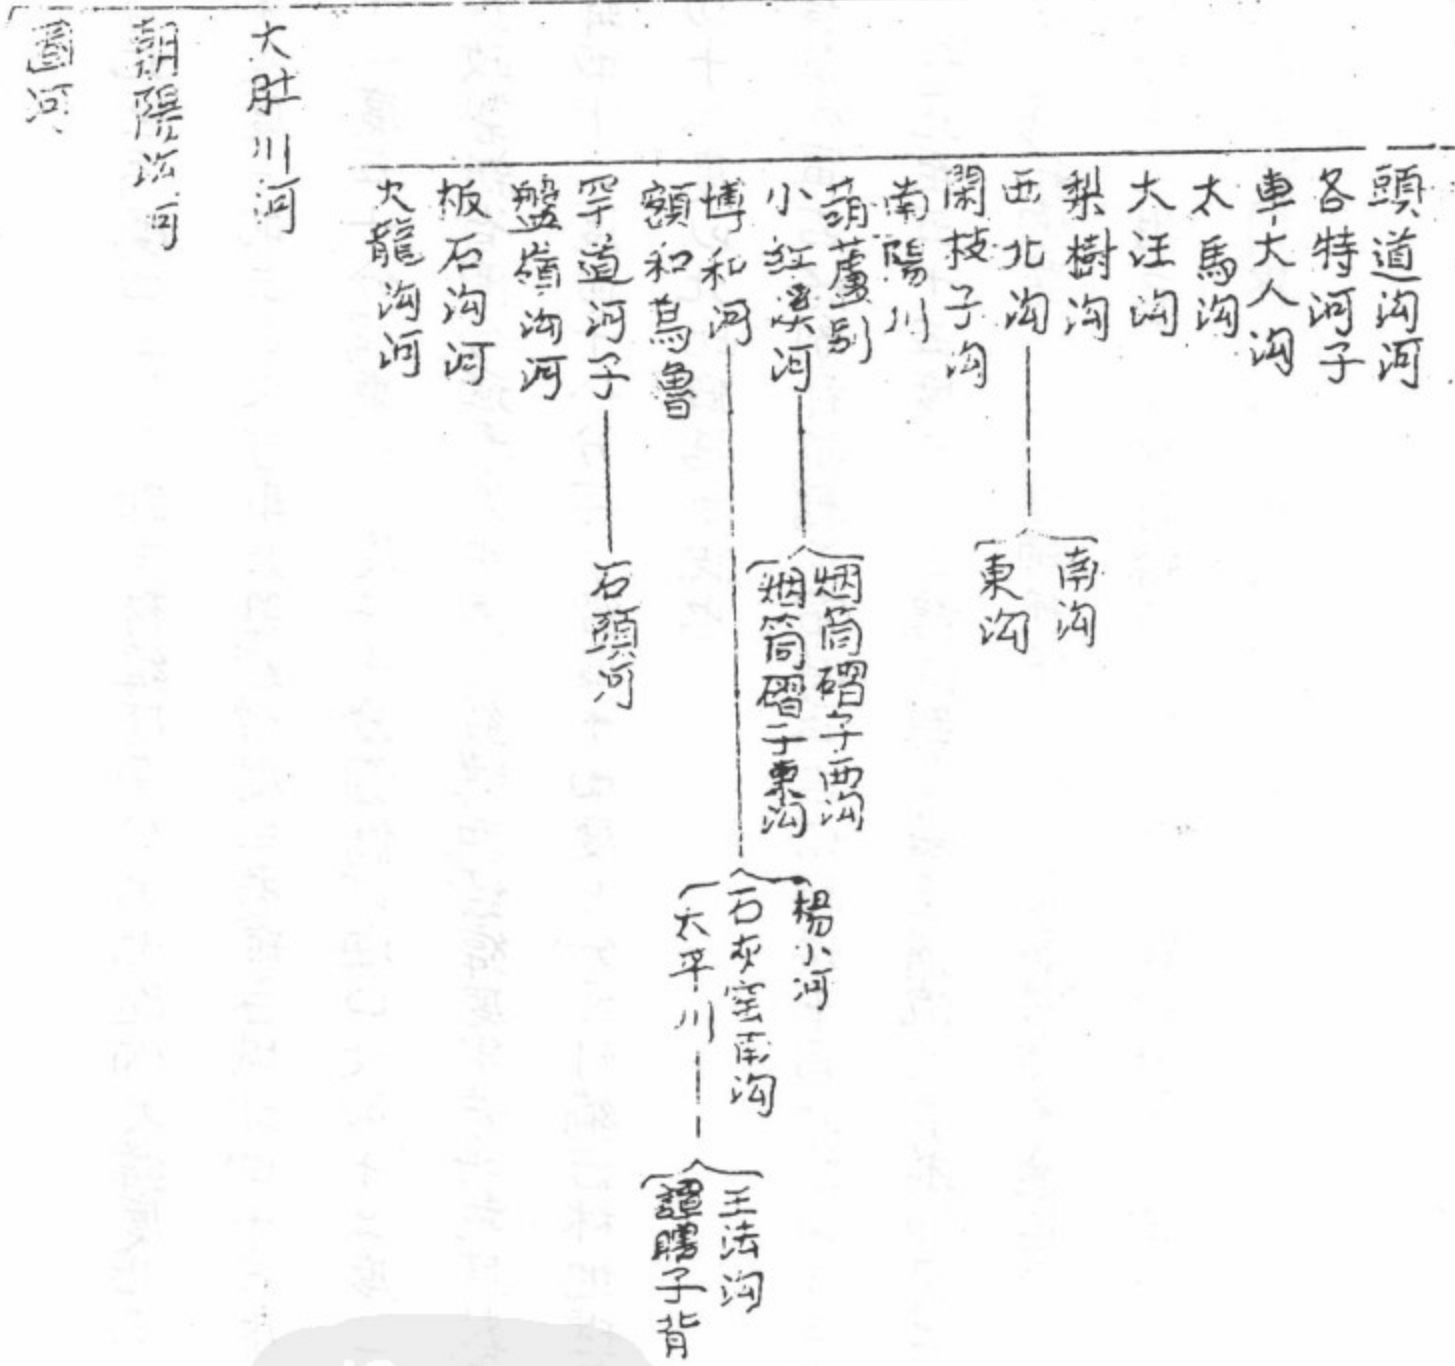 頭道溝河
各特河子
車大人沟
太馬沟
大汪沟
梨樹溝
西北沟
南沟
東沟
閑枝子沟
南陽川
葫蘆别
小紅溪河
烟筒磖子西沟
烟筒磖子東沟
博和河
楊小河
石灰窑南沟
太平川
王法沟
子背
額和萬魯
罕道河子
石頭河
盤嶺溝河
板石沟河
火龍沟河
大肚川河
朝陽沟河
圖河